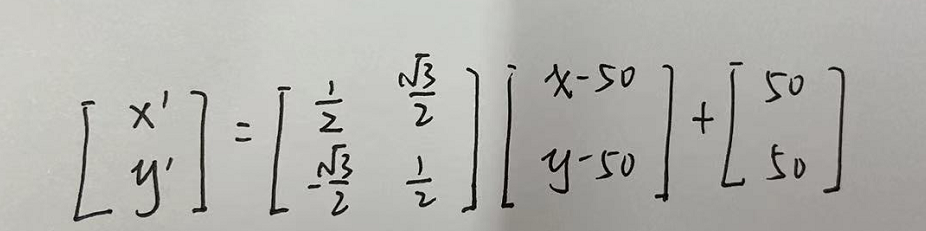 [x' y'] = [1/2 √3/2; -√3/2 1/2] [x-50 y-50] + [50 50]